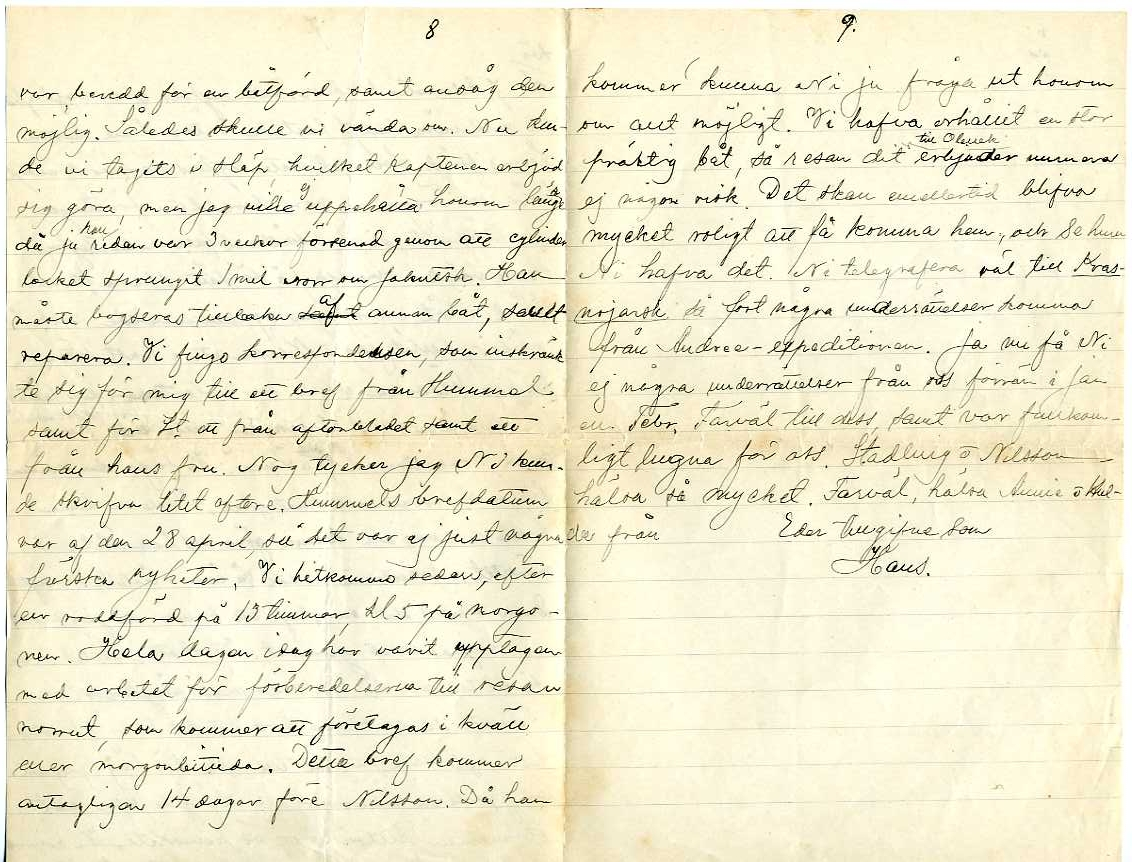 8
var beredd för en båtfärd, samt ansåg den
möjlig. Således skulle vi vända om. Nu kun-
de vi tagits i släp, hvilket kaptenen erbjöd
sig göra, men jag ville ej uppehålla honom länge
då ju han redan var 3 veckor försenad genom att cylinder
locket sprungit 1 mil norr om Jakutsk. Han
måste bogseras tillbaka af annan båt, samt
reparera. Vi fingo korrespondensen, som inskränk
te sig för mig till ett bref från Hummel
samt för St. ett från aftonbladet samt ett
från hans fru. Nog tycker jag Ni kun-
de skrifva litet oftare. Hummels brefdatum
var af den 28 april, så det var ej just några
färska nyheter. Vi hitkommo sedan, efter
en roddfärd på 13 timmar, kl 5 på morgo-
nen. Hela dagen idag har varit upptagen
med arbetet för förberedelserna till resan
norrut, som kommer att företagas i kväll
eller morgonbittida. Detta bref kommer
antagligen 14 dagar före Nilsson. Då han
9.
kommer kunna Ni ju fråga ut honom
om allt möjligt. Vi hafva erhållit en stor
präktig båt, så resan dit till Olenek erbjuder numera
ej någon risk. Det skall emellertid blifva
mycket roligt att få komma hem, och se huru
Ni hafva det. Ni telegrafera väl till Kras-
nojarsk så fort några underrättelser komma
från Andrée-expeditionen. Ja nu få Ni
ej några underrättelser från oss förrän i Jan
el. Febr. Farväl till dess samt var fullkom-
ligt lugna för oss. Stadling o Nilsson
hälsa så mycket. Farväl, hälsa Annie o Hul-
da från
Eder tillgifne son
Hans.